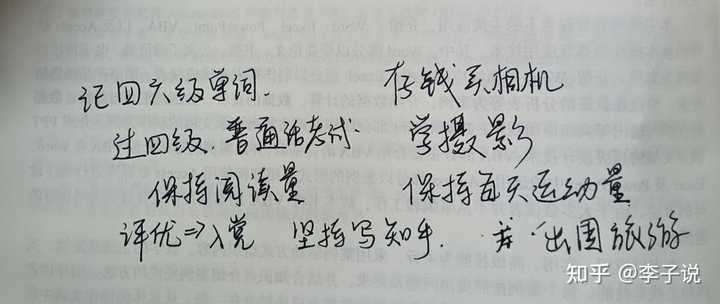 记四六级单词.
存钱买相机
过四级、普通话考试.
学摄影
保持阅读量
保持每天运动量
评优⇒入党
坚持写知乎.
出国旅游
知乎 @李子说